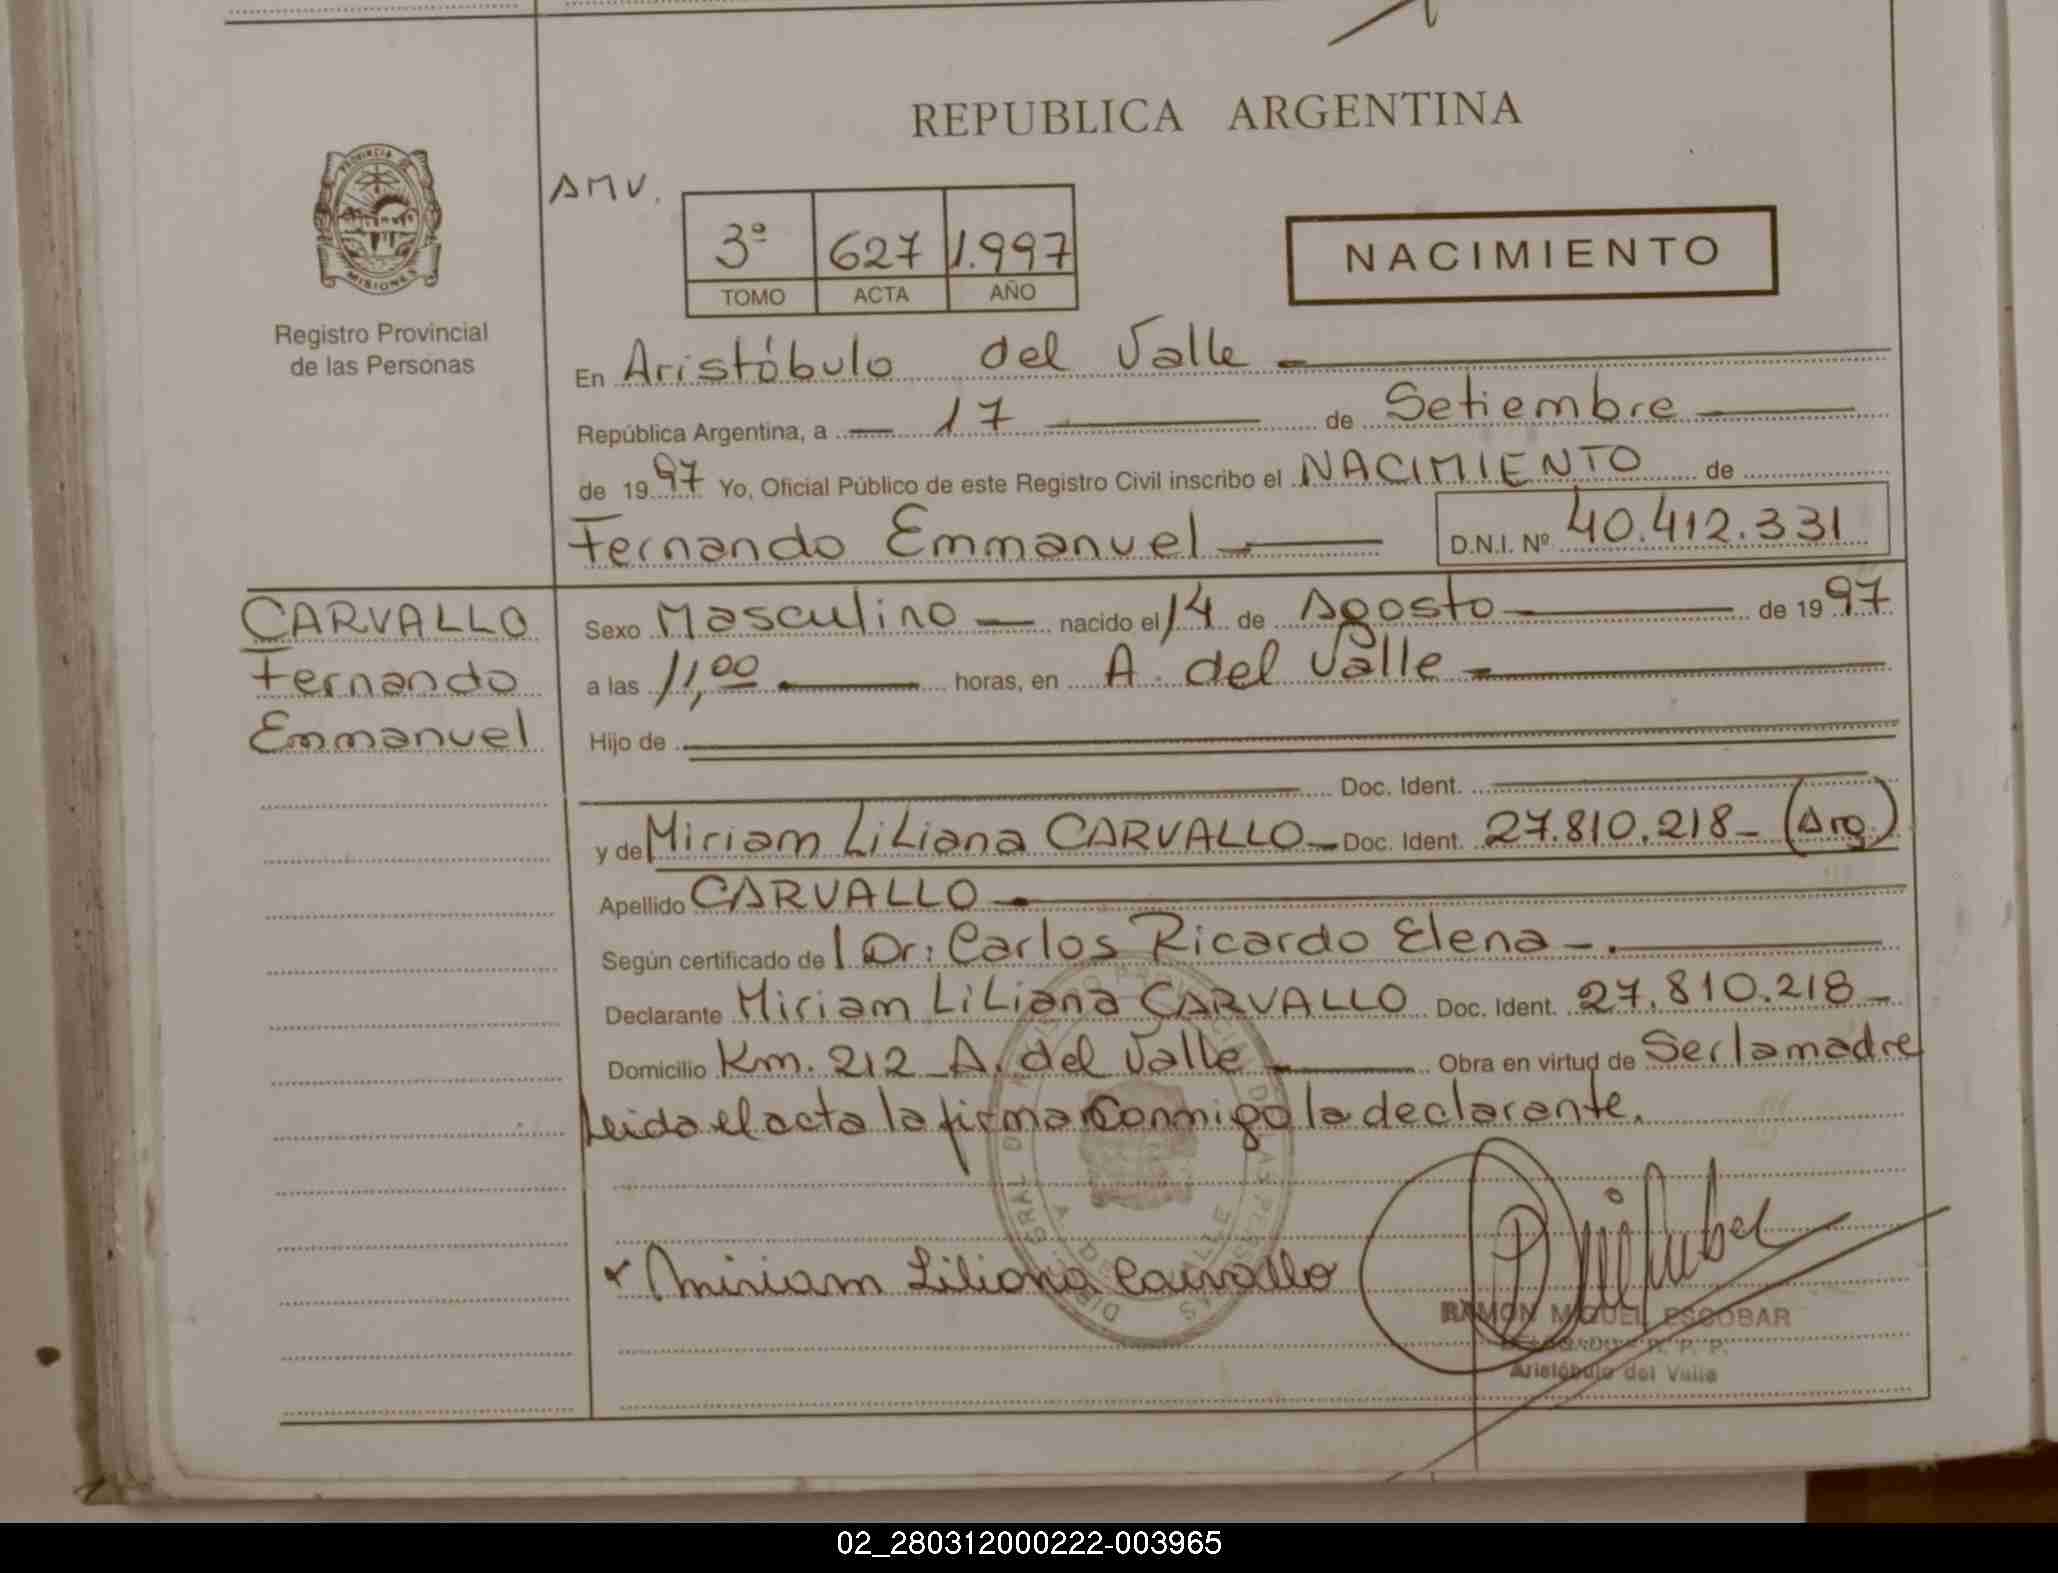 REPUBLICA ARGENTINA
PROVINCIA DE
MISIONES
Registro Provincial
de las Personas
AMV.
3º 627 1.997
TOMO ACTA AÑO
NACIMIENTO
En Aristóbulo del Valle
República Argentina, a 17 de Setiembre
de 1997 Yo, Oficial Público de este Registro Civil inscribo el NACIMIENTO de
Fernando Emmanuel D.N.I. Nº 40.412.331
CARVALLO
Fernando
Emmanuel
Sexo Masculino nacido el 14 de Agosto de 1997
a las 11,00 horas, en A. del Valle
Hijo de
Doc. Ident.
y de Miriam Liliana CARVALLO Doc. Ident. 27.810.218 (Arg.)
Apellido CARVALLO
Según certificado del Dr: Carlos Ricardo Elena
Declarante Miriam Liliana CARVALLO Doc. Ident. 27.810.218
Domicilio Km. 212 A. del Valle Obra en virtud de Ser la madre
Leida el acta la firma conmigo la declarante.
Miriam Liliana Carvallo
RAMON MIGUEL ESCOBAR
DELEGADO - R. P. P.
Aristóbulo del Valle
02_280312000222-003965